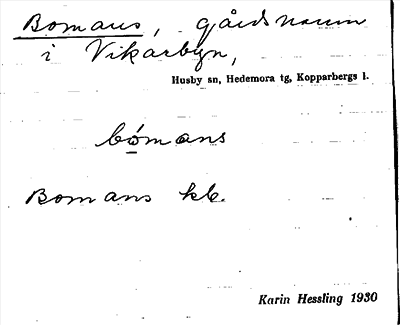 Bomans, gårdsnamn
i Vikarbyn,
Husby sn, Hedemora tg, Kopparbergs l.
bómans
Bomans kb.
Karin Hessling 1930